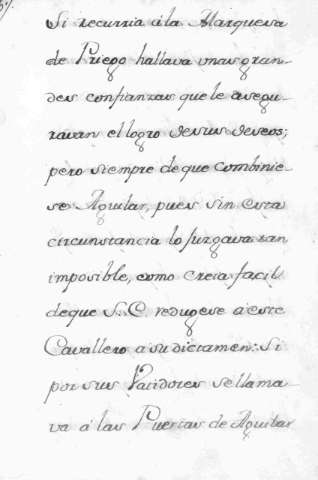 Si recurria á la Marquesa
de Priego hallava unas gran-
des confianzas que le asegu-
ravan el logro de sus deseos;
pero siempre de que combinie-
se Aguilar, pues sin esta
circunstancia lo juzgava tan
imposible, como creia facil
de que S. C. redugese á este
Cavallero a su dictamen: Si
por sus Validores se llama-
va á las Puertas de Aguilar